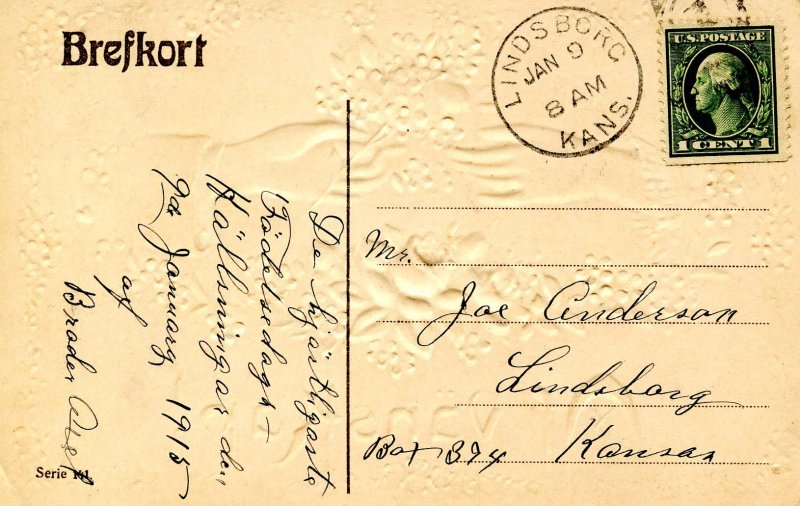 Brefkort
LINDSBORG
JAN 9
8 AM
KANS.
U.S. POSTAGE
1 CENT 1
De hjärtligaste
Födelsedags-
Hällsningar den
9de January 1915
af
Broder
Mr.
Joe Anderson
Lindsborg
Box 374 Kansas
Serie